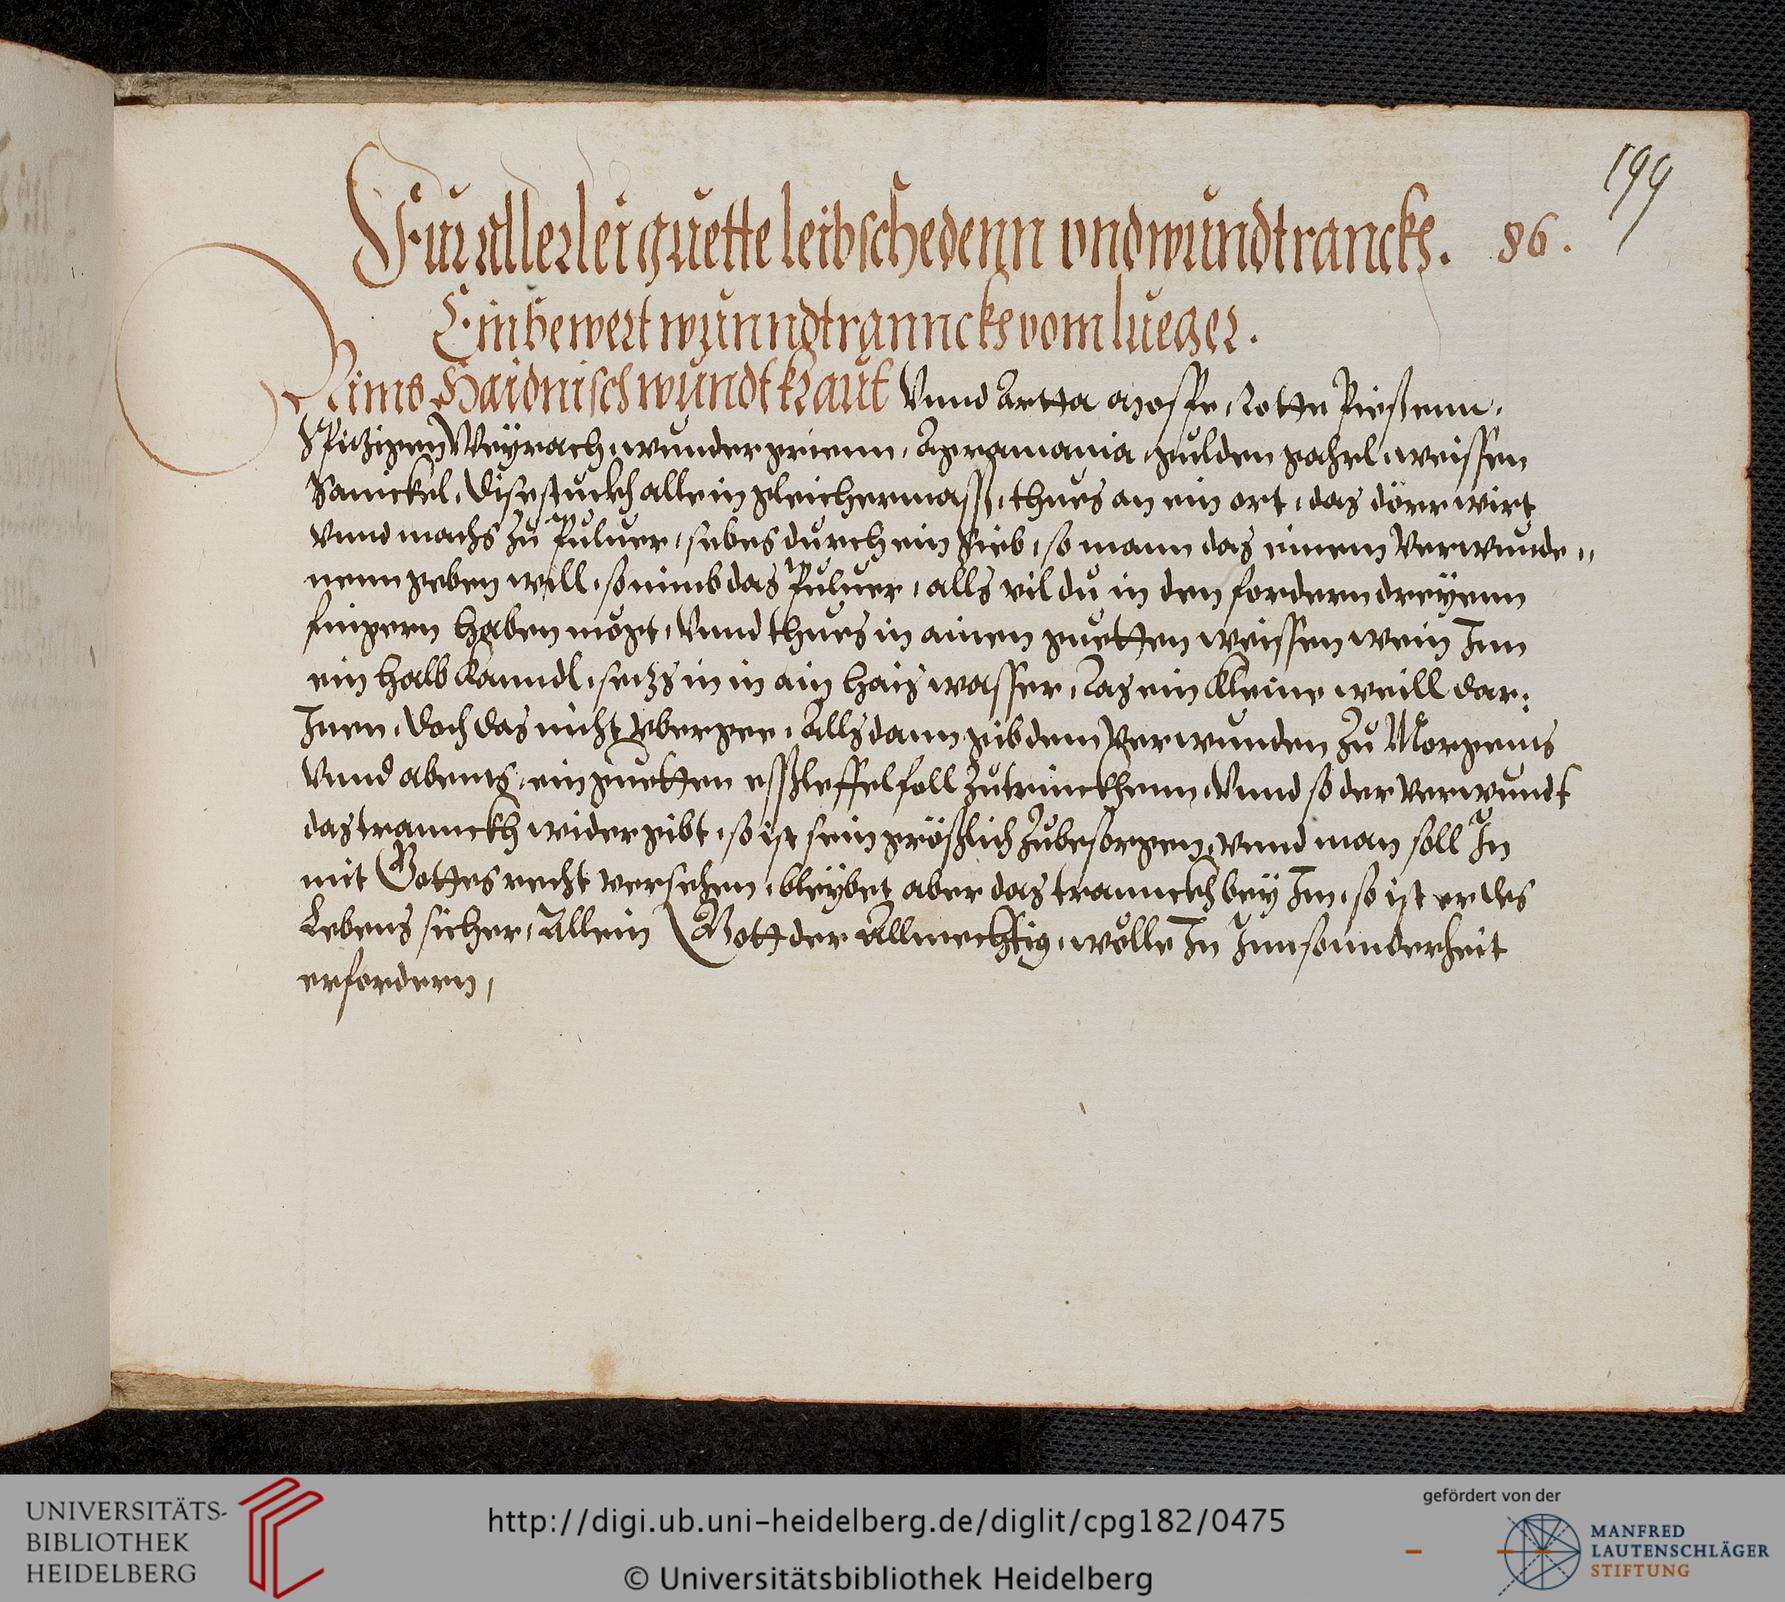 199
Fur allerlei guette leibschedenn vnd wundtrancks. 86.
Ein bewert wunndtranncks vom lueger.
Nimb Haidnisch wundtkraut Vnnd rotte
Weyrach, wundergrienn, Agramania, gulden gahrl, weissen
Sanickel, dise stuckh alle in gleicher mass, thues an ein ort, das dörr wirt
vnnd machs zu Puluer, sebes durch ein Sieb, so mann das einem Verwunde„
nenn geben will, so nimb das Puluer, alls vil du in den fordern dreyenn
fingern haben mögt, Vnnd thues in ainen guetten weissen wein Inn
ein halb Kanndl, setzs in in ain hais wasser, Las ein kleine weill dar:
Inen, doch das nicht vbergee, Allsdann gib dem Verwunden Zu Morgenns
Vnnd abents, ein guetten esslleffel foll zutrinckhenn, Vnnd so der Verwundt
das tranckh wider gibt, so ist sein grösslich zubesorgen, vnnd man soll In
mit Gottes recht versehen, bleybet aber das tranckh bey Im, so ist er des
Lebens sicher, Allein Gott der Allmechtig, wölle In Innsonnderheit
erfordern,
UNIVERSITÄTS-
BIBLIOTHEK
HEIDELBERG
http://digi.ub.uni-heidelberg.de/diglit/cpg182/0475
© Universitätsbibliothek Heidelberg
gefördert von der
MANFRED
LAUTENSCHLÄGER
STIFTUNG